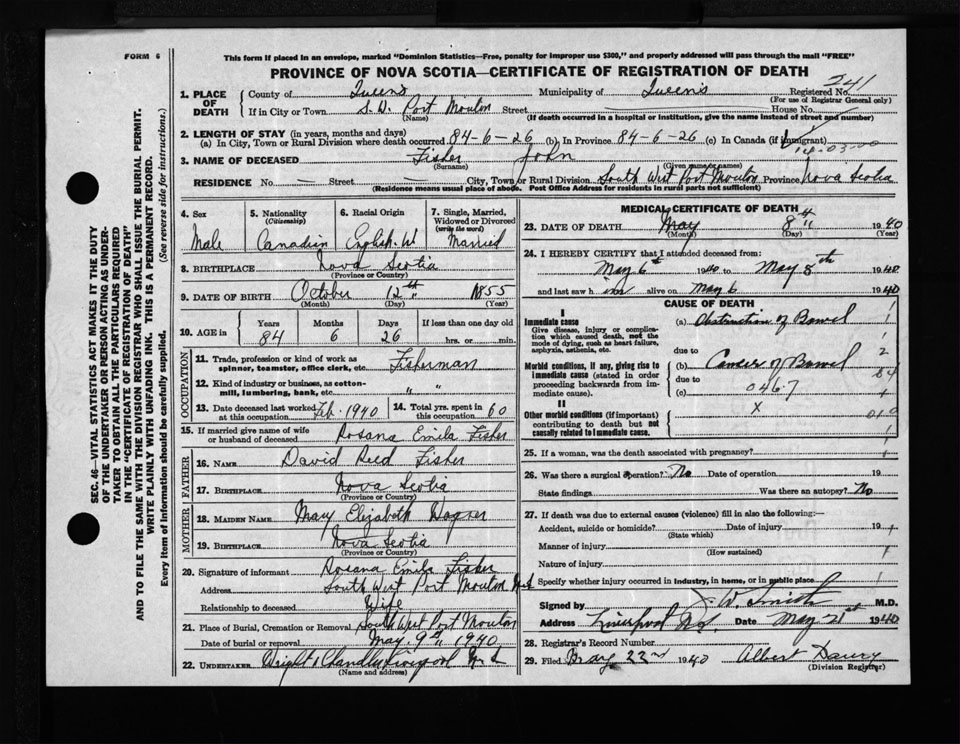 FORM 6
This form if placed in an envelope, marked "Dominion Statistics—Free, penalty for improper use $300," and properly addressed will pass through the mail "FREE"
PROVINCE OF NOVA SCOTIA—CERTIFICATE OF REGISTRATION OF DEATH
SEC. 46—VITAL STATISTICS ACT MAKES IT THE DUTY
OF THE UNDERTAKER OR PERSON ACTING AS UNDER-
TAKER TO OBTAIN ALL THE PARTICULARS REQUIRED
IN THE "CERTIFICATE OF REGISTRATION OF DEATH"
AND TO FILE THE SAME WITH THE DIVISION REGISTRAR WHO SHALL ISSUE THE BURIAL PERMIT.
WRITE PLAINLY WITH UNFADING INK. THIS IS A PERMANENT RECORD.
Every item of information should be carefully supplied. (See reverse side for instructions.)
241
1. PLACE OF DEATH County of Queens Municipality of Queens Registered No.
(For use of Registrar General only)
If in City or Town S.W. Port Mouton Street House No.
(Name) (If death occurred in a hospital or institution, give the name instead of street and number)
2. LENGTH OF STAY (in years, months and days)
(a) In City, Town or Rural Division where death occurred 84-6-26 (b) In Province 84-6-26 (c) In Canada (if immigrant)
14-03-00
3. NAME OF DECEASED Fisher John
(Surname) (Given name or names)
RESIDENCE No. — Street — City, Town or Rural Division South West Port Mouton Province Nova Scotia
(Residence means usual place of abode. Post Office Address for residents in rural parts not sufficient)
4. Sex
Male
5. Nationality
(Citizenship)
Canadian
6. Racial Origin
English. W
7. Single, Married,
Widowed or Divorced
(write the word)
Married
8. BIRTHPLACE Nova Scotia
(Province or Country)
9. DATE OF BIRTH October 12th 1855
(Month) (Day) (Year)
10. AGE in Years Months Days If less than one day old
84 6 26 hrs. or min.
OCCUPATION
11. Trade, profession or kind of work as
spinner, teamster, office clerk, etc. Fisherman
12. Kind of industry or business, as cotton-
mill, lumbering, bank, etc. " "
13. Date deceased last worked at this occupation Feb. 1940 14. Total yrs. spent in this occupation 60
15. If married give name of wife
or husband of deceased Rosana Emila Fisher
FATHER
16. NAME David Reed Fisher
17. BIRTHPLACE Nova Scotia
(Province or Country)
MOTHER
18. MAIDEN NAME Mary Elizabeth Wagner
19. BIRTHPLACE Nova Scotia
(Province or Country)
20. Signature of informant Rosana Emila Fisher
Address South West Port Mouton N.S
Relationship to deceased Wife
21. Place of Burial, Cremation or Removal South West Port Mouton
Date of burial or removal May. 9th 1940
22. UNDERTAKER Wright & Chandler Liverpool N.S
(Name and address)
MEDICAL CERTIFICATE OF DEATH
23. DATE OF DEATH May 8th 1940
(Month) (Day) (Year)
24. I HEREBY CERTIFY that I attended deceased from:
May 6th 1940 to May 8th 1940
and last saw him alive on May 6 1940
CAUSE OF DEATH
I
Immediate cause
Give disease, injury or complica-
tion which caused death, not the
mode of dying, such as heart failure,
asphyxia, asthenia, etc.
(a) Obstruction of Bowel
due to
Morbid conditions, if any, giving rise to
immediate cause (stated in order
proceeding backwards from im-
mediate cause).
(b) Cancer of Bowel
due to
(c) 046.7
2
84
010
II
Other morbid conditions (if important)
contributing to death but not
causally related to immediate cause.
X
25. If a woman, was the death associated with pregnancy?
26. Was there a surgical operation? No Date of operation 19
State findings Was there an autopsy? No
27. If death was due to external causes (violence) fill in also the following:—
Accident, suicide or homicide? Date of injury 19
(State which)
Manner of injury
(How sustained)
Nature of injury
Specify whether injury occurred in industry, in home, or in public place
Signed by J. W. Smith M.D.
Address Liverpool N.S. Date May 21st 1940
28. Registrar's Record Number
29. Filed May 22nd 1940 Albert
(Division Registrar)